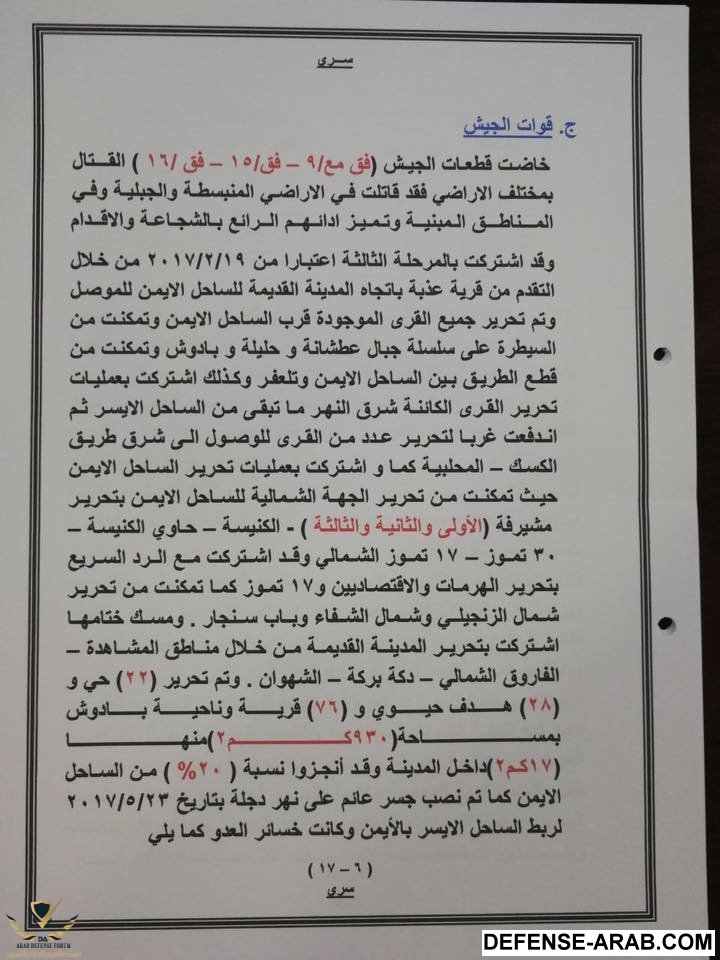 سرى
ج. قوات الجيش
خاضت قطعات الجيش (فق مع/٩ – فق/١٥ – فق /١٦ ) القتال
بمختلف الاراضي فقد قاتلت في الاراضي المنبسطة والجبلية وفي
المناطق المبنية وتميز ادائهم الرائع بالشجاعة والاقدام
وقد اشتركت بالمرحلة الثالثة اعتبارا من ٢٠١٧/٢/١٩ من خلال
التقدم من قرية عذبة باتجاه المدينة القديمة للساحل الايمن للموصل
وتم تحرير جميع القرى الموجودة قرب الساحل الايمن وتمكنت من
السيطرة على سلسلة جبال عطشانة و حليلة و بادوش وتمكنت من
قطع الطريق بين الساحل الايمن وتلعفر وكذلك اشتركت بعمليات
تحرير القرى الكائنة شرق النهر ما تبقى من الساحل الايسر ثم
اندفعت غربا لتحرير عدد من القرى للوصول الى شرق طريق
الكسك – المحلبية كما و اشتركت بعمليات تحرير الساحل الايمن
حيث تمكنت من تحرير الجهة الشمالية للساحل الايمن بتحرير
مشيرفة (الأولى والثانية والثالثة ) - الكنيسة – حاوي الكنيسة –
٣٠ تموز – ١٧ تموز الشمالي وقد اشتركت مع الرد السريع
بتحرير الهرمات والاقتصاديين و١٧ تموز كما تمكنت من تحرير
شمال الزنجيلي وشمال الشفاء وباب سنجار . ومسك ختامها
اشتركت بتحرير المدينة القديمة من خلال مناطق المشاهدة –
الفاروق الشمالي – دكة بركة – الشهوان . وتم تحرير (٢٢) حي و
(٢٨) هدف حيوي و (٧٦) قرية وناحية بادوش
بمساحة(٩٣٠كم٢)منها
(١٧كم٢)داخل المدينة وقد أنجزوا نسبة ( ٢٠%) من الساحل
الايمن كما تم نصب جسر عائم على نهر دجلة بتاريخ ٢٠١٧/٥/٢٣
لربط الساحل الايسر بالأيمن وكانت خسائر العدو كما يلي
( ٦ – ١٧ )
سرى
ARAB DEFENSE FORUM
DEFENSE-ARAB.COM